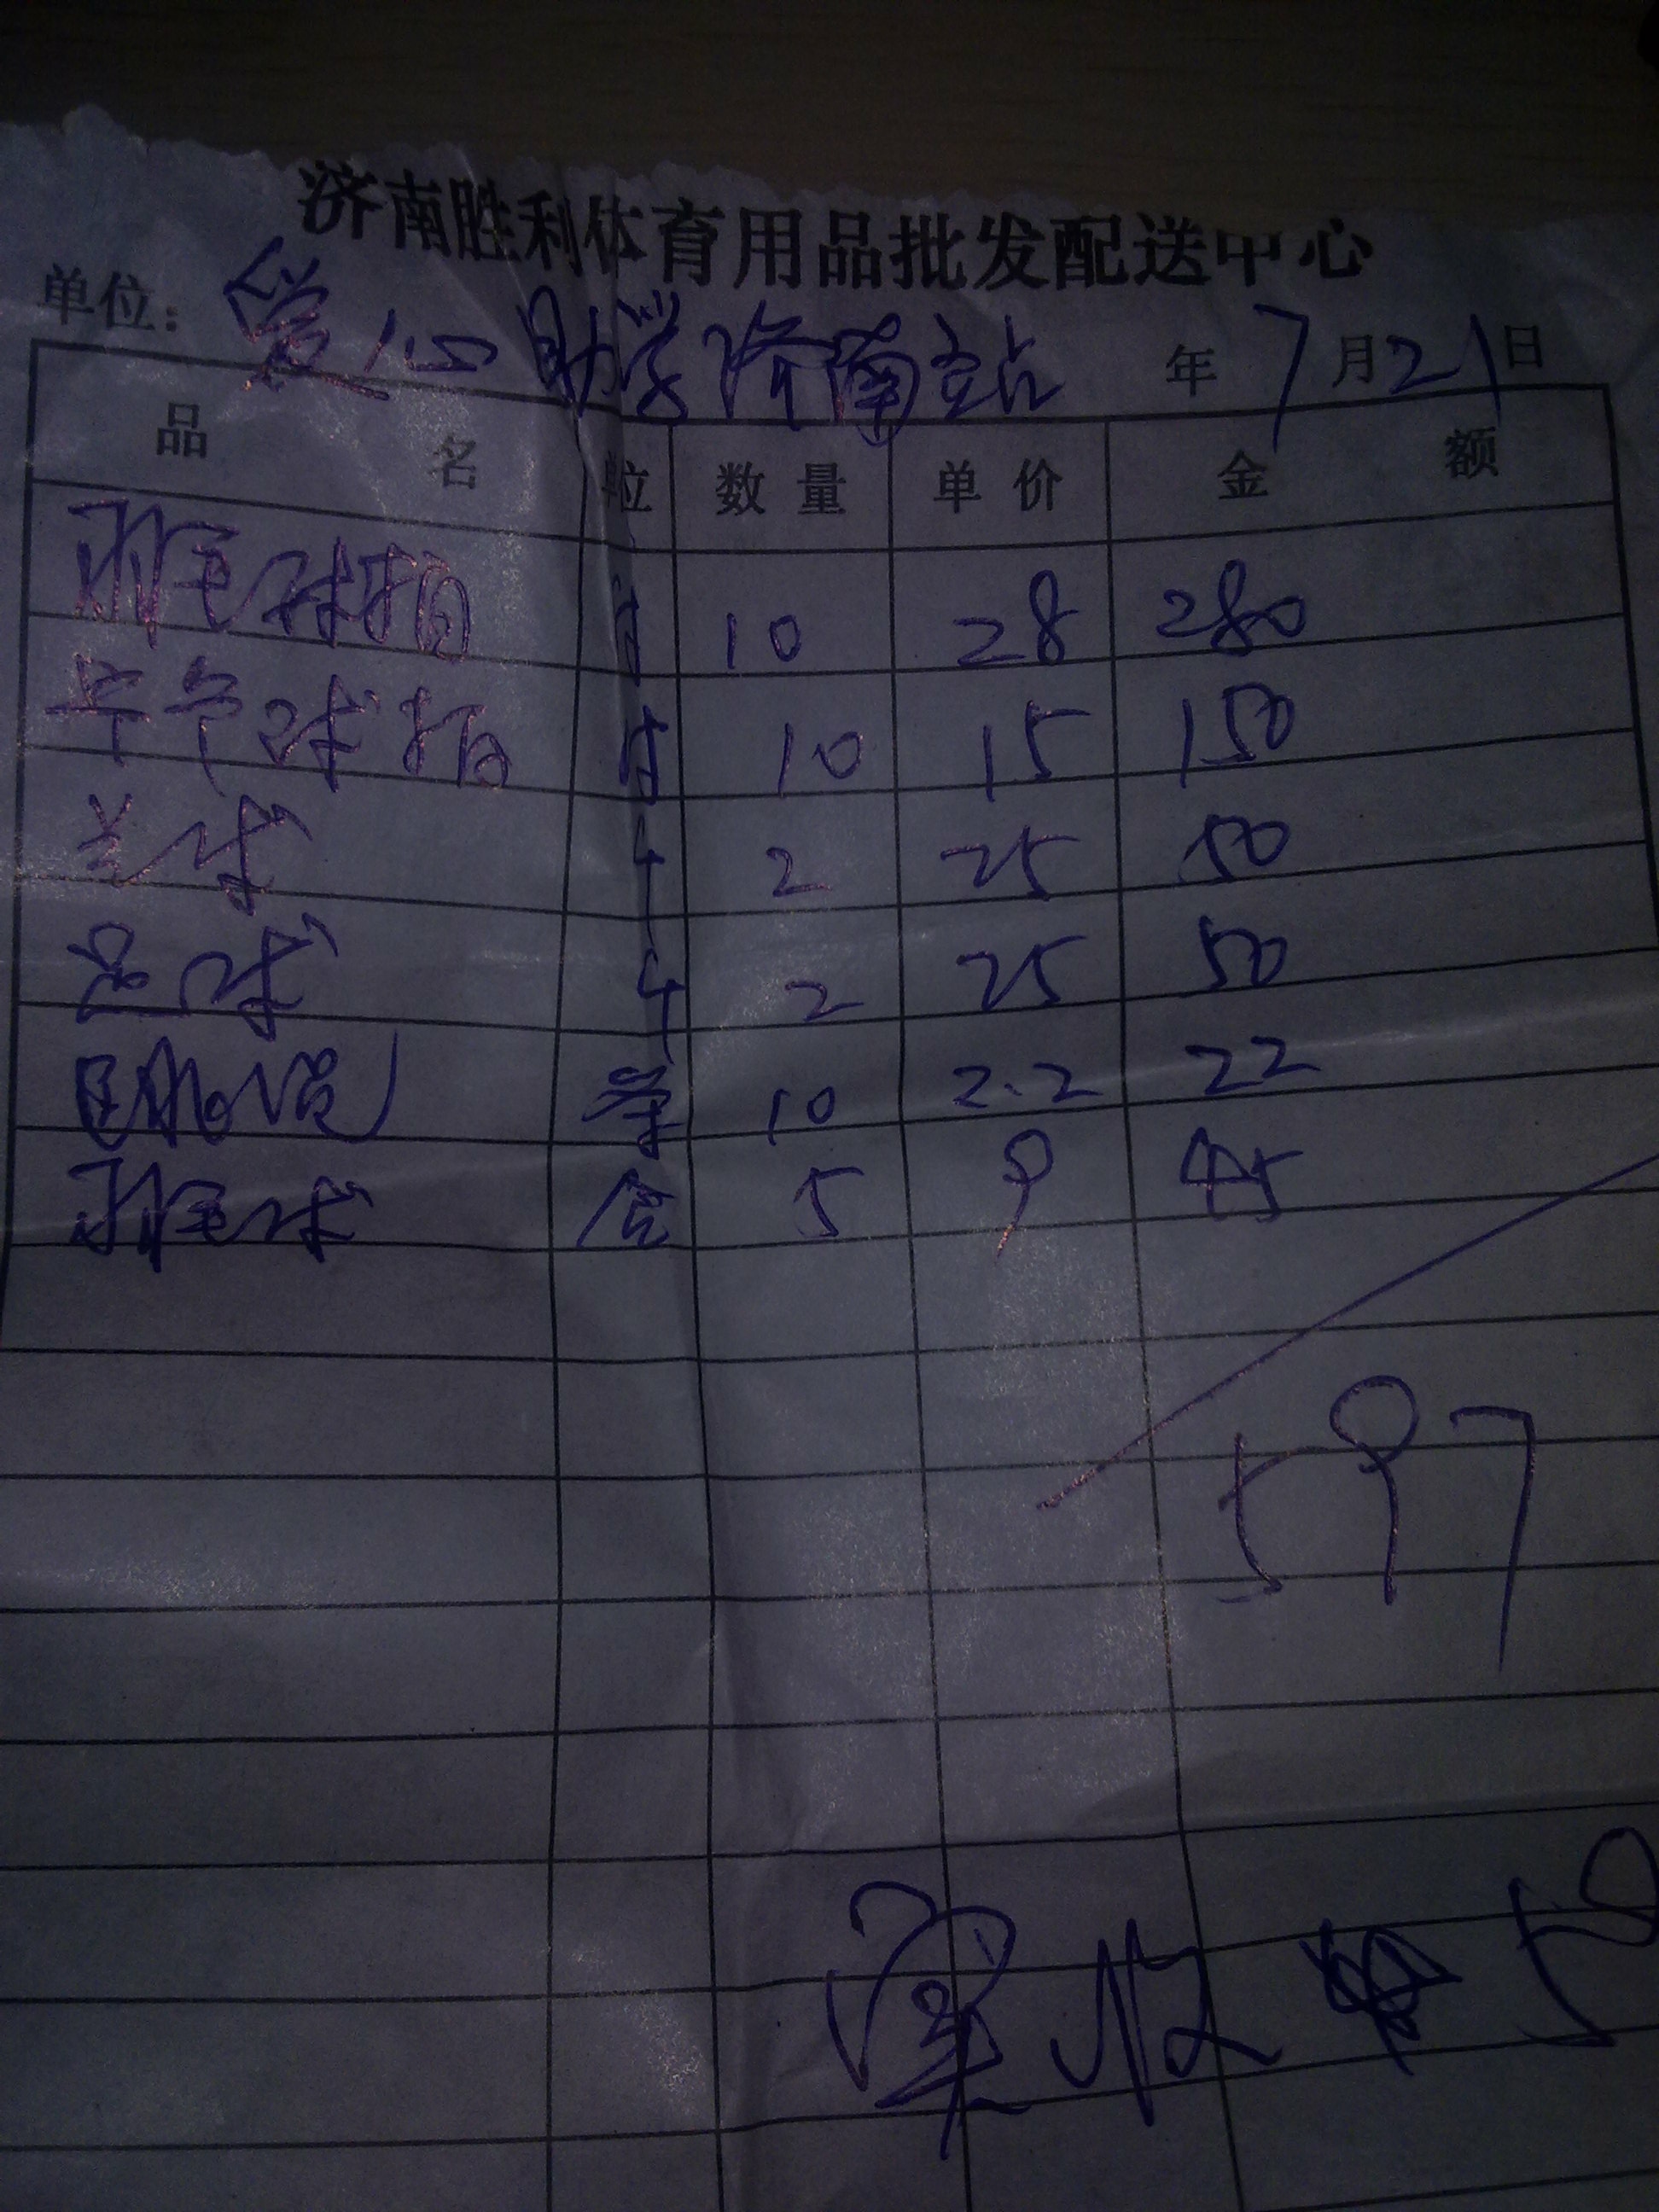 济南胜利体育用品批发配送中心
单位: 爱心助学济南站 年 7 月 21 日
品 名 单位 数量 单价 金 额
羽毛球拍 付 10 28 280
乒乓球拍 付 10 15 150
兰球 个 2 25 50
足球 个 2 25 50
10 2.2 22
羽毛球 合 5 9 45
597
实收